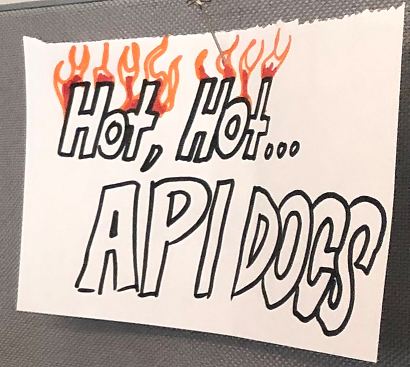 Hot, Hot...
API DOCS